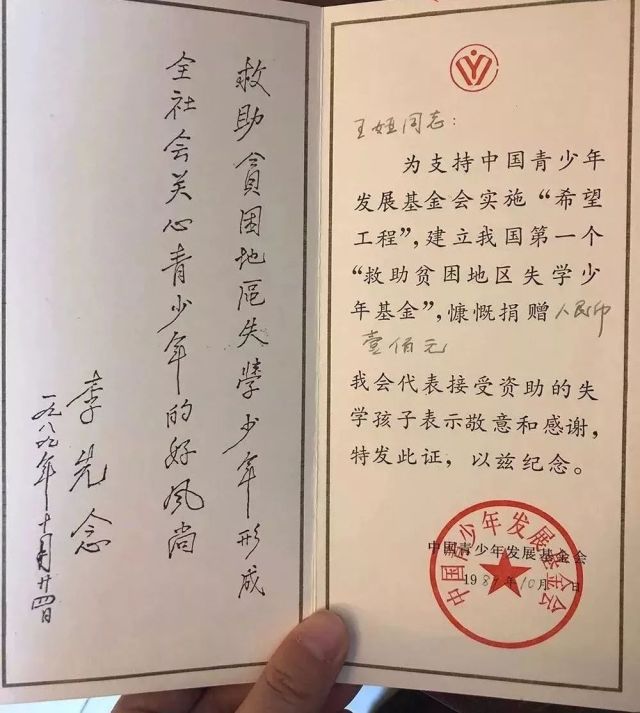 救助貧困地區失學少年形成
全社会关心青少年的好风尚
李先念
一九八九年十月廿四日
王同志：
为支持中国青少年
发展基金会实施“希望
工程”，建立我国第一个
“救助贫困地区失学少
年基金”，慷慨捐赠人民币
壹佰元
我会代表接受资助的失
学孩子表示敬意和感谢，
特发此证，以兹纪念。
中国青少年发展基金会
1989年10月 日
中国青少年发展基金会